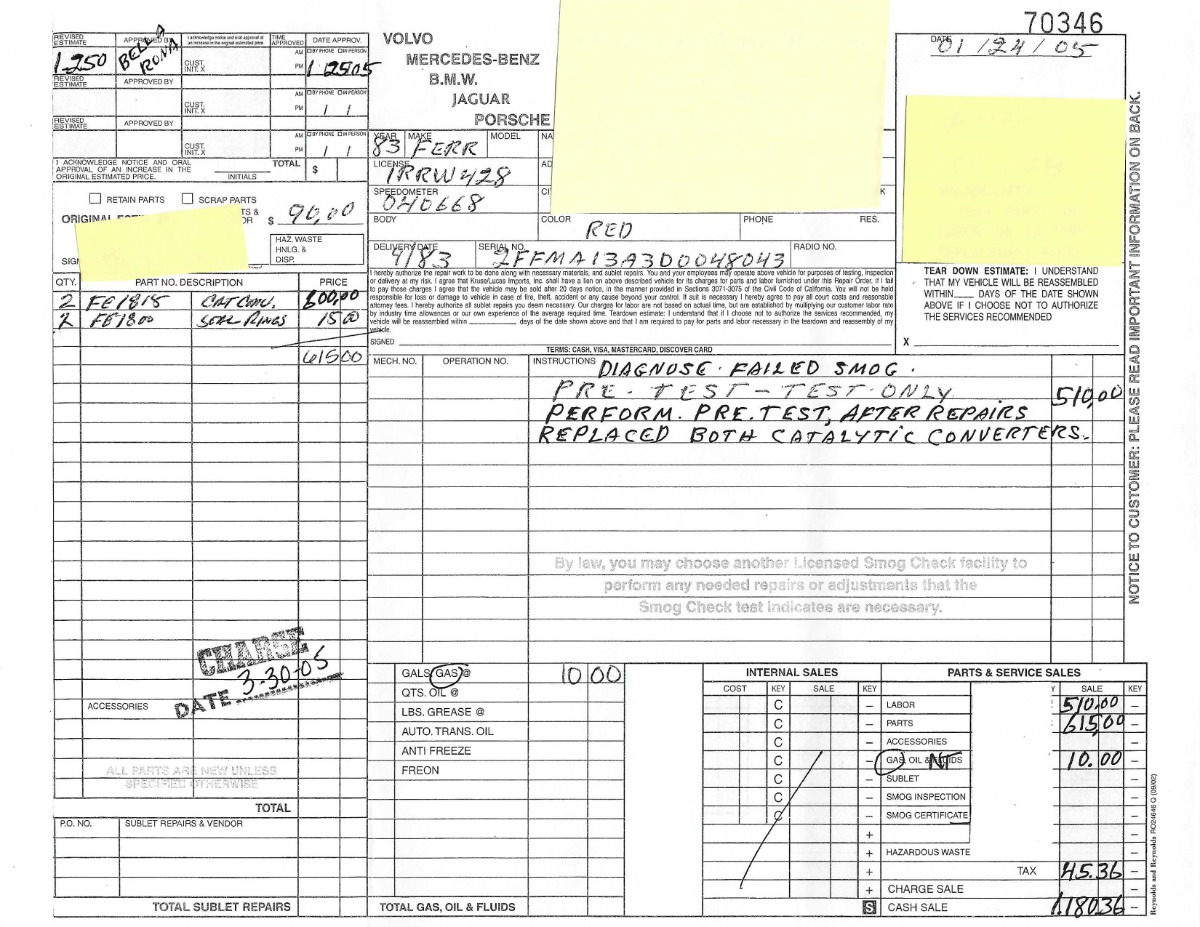 70346
DATE
01/24/05
REVISED ESTIMATE
APPROVED BY
I acknowledge notice and oral approval of an increase in the original estimated price.
TIME APPROVED
DATE APPROV.
1250
BELLA RONA
CUST. INIT. X
AM
PM
BY PHONE IN PERSON
1 25 05
REVISED ESTIMATE
APPROVED BY
CUST. INIT. X
AM
PM
BY PHONE IN PERSON
/ /
REVISED ESTIMATE
APPROVED BY
CUST. INIT. X
AM
PM
BY PHONE IN PERSON
/ /
I ACKNOWLEDGE NOTICE AND ORAL
APPROVAL OF AN INCREASE IN THE
ORIGINAL ESTIMATED PRICE.
INITIALS
TOTAL
$
RETAIN PARTS
SCRAP PARTS
$ 90,00
HAZ. WASTE
HNLG. &
DISP.
VOLVO
MERCEDES-BENZ
B.M.W.
JAGUAR
PORSCHE
YEAR MAKE MODEL NA
83 FERR
LICENSE AD
1RRW428
SPEEDOMETER CI K
040668
BODY COLOR PHONE RES.
RED
DELIVERY DATE SERIAL NO. RADIO NO.
4/83 2FFMA13A3D0048043
I hereby authorize the repair work to be done along with necessary materials, and sublet repairs. You and your employees may operate above vehicle for purposes of testing, inspection
or delivery at my risk. I agree that Kruse/Lucas Imports, Inc. shall have a lien on above described vehicle for its charges for parts and labor furnished under this Repair Order. If I fail
to pay those charges I agree that the vehicle may be sold after 20 days notice, in the manner provided in Sections 3071-3075 of the Civil Code of California. You will not be held
responsible for loss or damage to vehicle in case of fire, theft, accident or any cause beyond your control. If suit is necessary I hereby agree to pay all court costs and reasonable
attorney fees. I hereby authorize all sublet repairs you deem necessary. Our charges for labor are not based on actual time, but are established by multiplying our customer labor rate
by industry time allowances or our own experience of the average required time. Teardown estimate: I understand that if I choose not to authorize the services recommended, my
vehicle will be reassembled within days of the date shown above and that I am required to pay for parts and labor necessary in the teardown and reassembly of my
vehicle.
SIGNED
TERMS: CASH, VISA, MASTERCARD, DISCOVER CARD
TEAR DOWN ESTIMATE: I UNDERSTAND
THAT MY VEHICLE WILL BE REASSEMBLED
WITHIN____ DAYS OF THE DATE SHOWN
ABOVE IF I CHOOSE NOT TO AUTHORIZE
THE SERVICES RECOMMENDED
X
NOTICE TO CUSTOMER: PLEASE READ IMPORTANT INFORMATION ON BACK.
QTY. PART NO. DESCRIPTION PRICE
2 FE1815 CAT CONV. 600,00
2 FE1800 SEAL RINGS 15 00
615 00
MECH. NO. OPERATION NO. INSTRUCTIONS
DIAGNOSE. FAILED SMOG.
PRE-TEST-TEST-ONLY 510,00
PERFORM. PRE.TEST, AFTER REPAIRS
REPLACED BOTH CATALYTIC CONVERTERS.
By law, you may choose another Licensed Smog Check facility to
perform any needed repairs or adjustments that the
Smog Check test indicates are necessary.
CHARGE
DATE 3-30-05
ACCESSORIES
ALL PARTS ARE NEW UNLESS
SPECIFIED OTHERWISE
TOTAL
P.O. NO. SUBLET REPAIRS & VENDOR
TOTAL SUBLET REPAIRS
GALS GAS @ 10 00
QTS. OIL @
LBS. GREASE @
AUTO. TRANS. OIL
ANTI FREEZE
FREON
TOTAL GAS, OIL & FLUIDS
INTERNAL SALES
COST KEY SALE KEY
C
C
C
C
C
C
C
PARTS & SERVICE SALES
SALE KEY
LABOR 510,00
PARTS 615,00
ACCESSORIES
GAS, OIL & FLUIDS NT 10.00
SUBLET
SMOG INSPECTION
SMOG CERTIFICATE
HAZARDOUS WASTE
TAX 45.36
CHARGE SALE
S CASH SALE 1,180.36
Reynolds and Reynolds RO24646 Q (09/02)